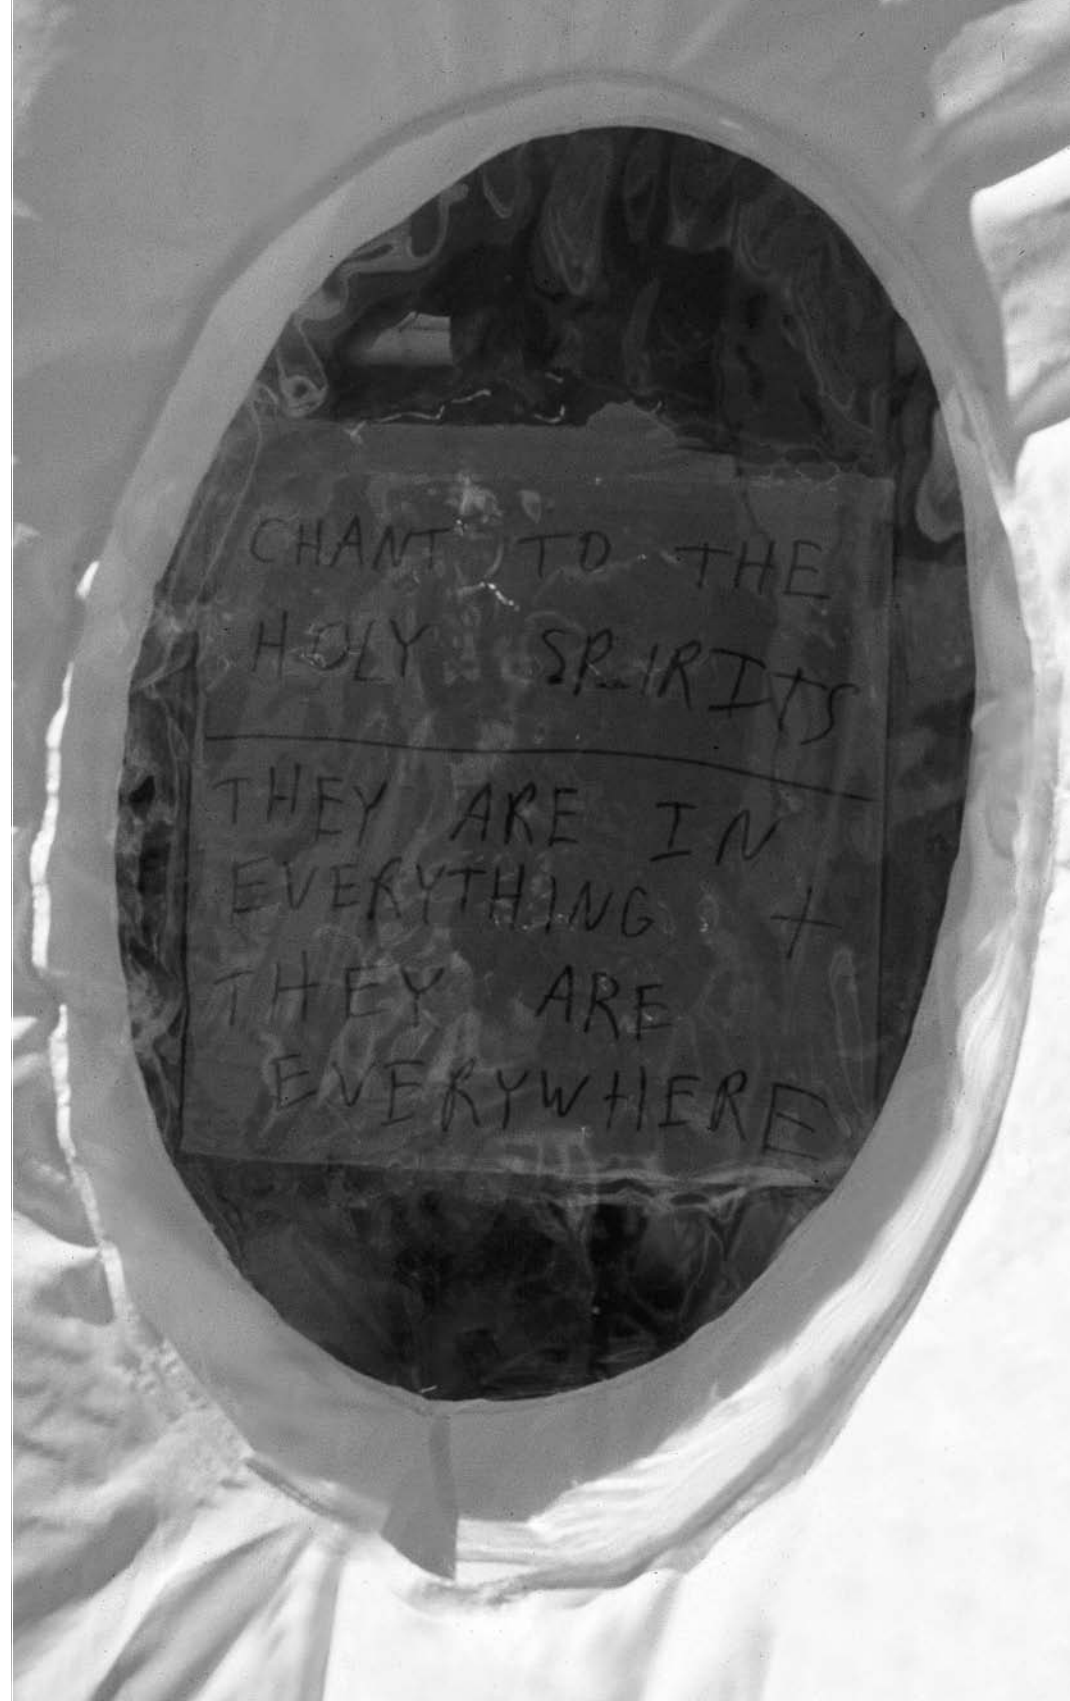 CHANT TO THE
HOLY SPIRITS
THEY ARE IN
EVERYTHING +
THEY ARE
EVERYWHERE